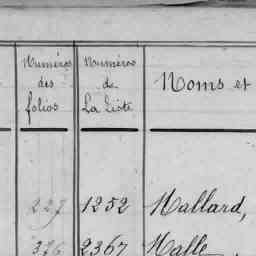 Numéros des folios
Numéros de La Liste
Noms et
227 1252 Mallard,
376 2367 Malle